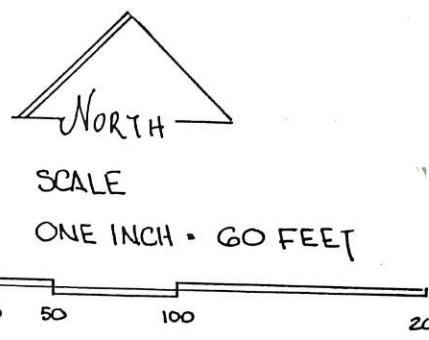 NORTH
SCALE
ONE INCH = 60 FEET
50 100